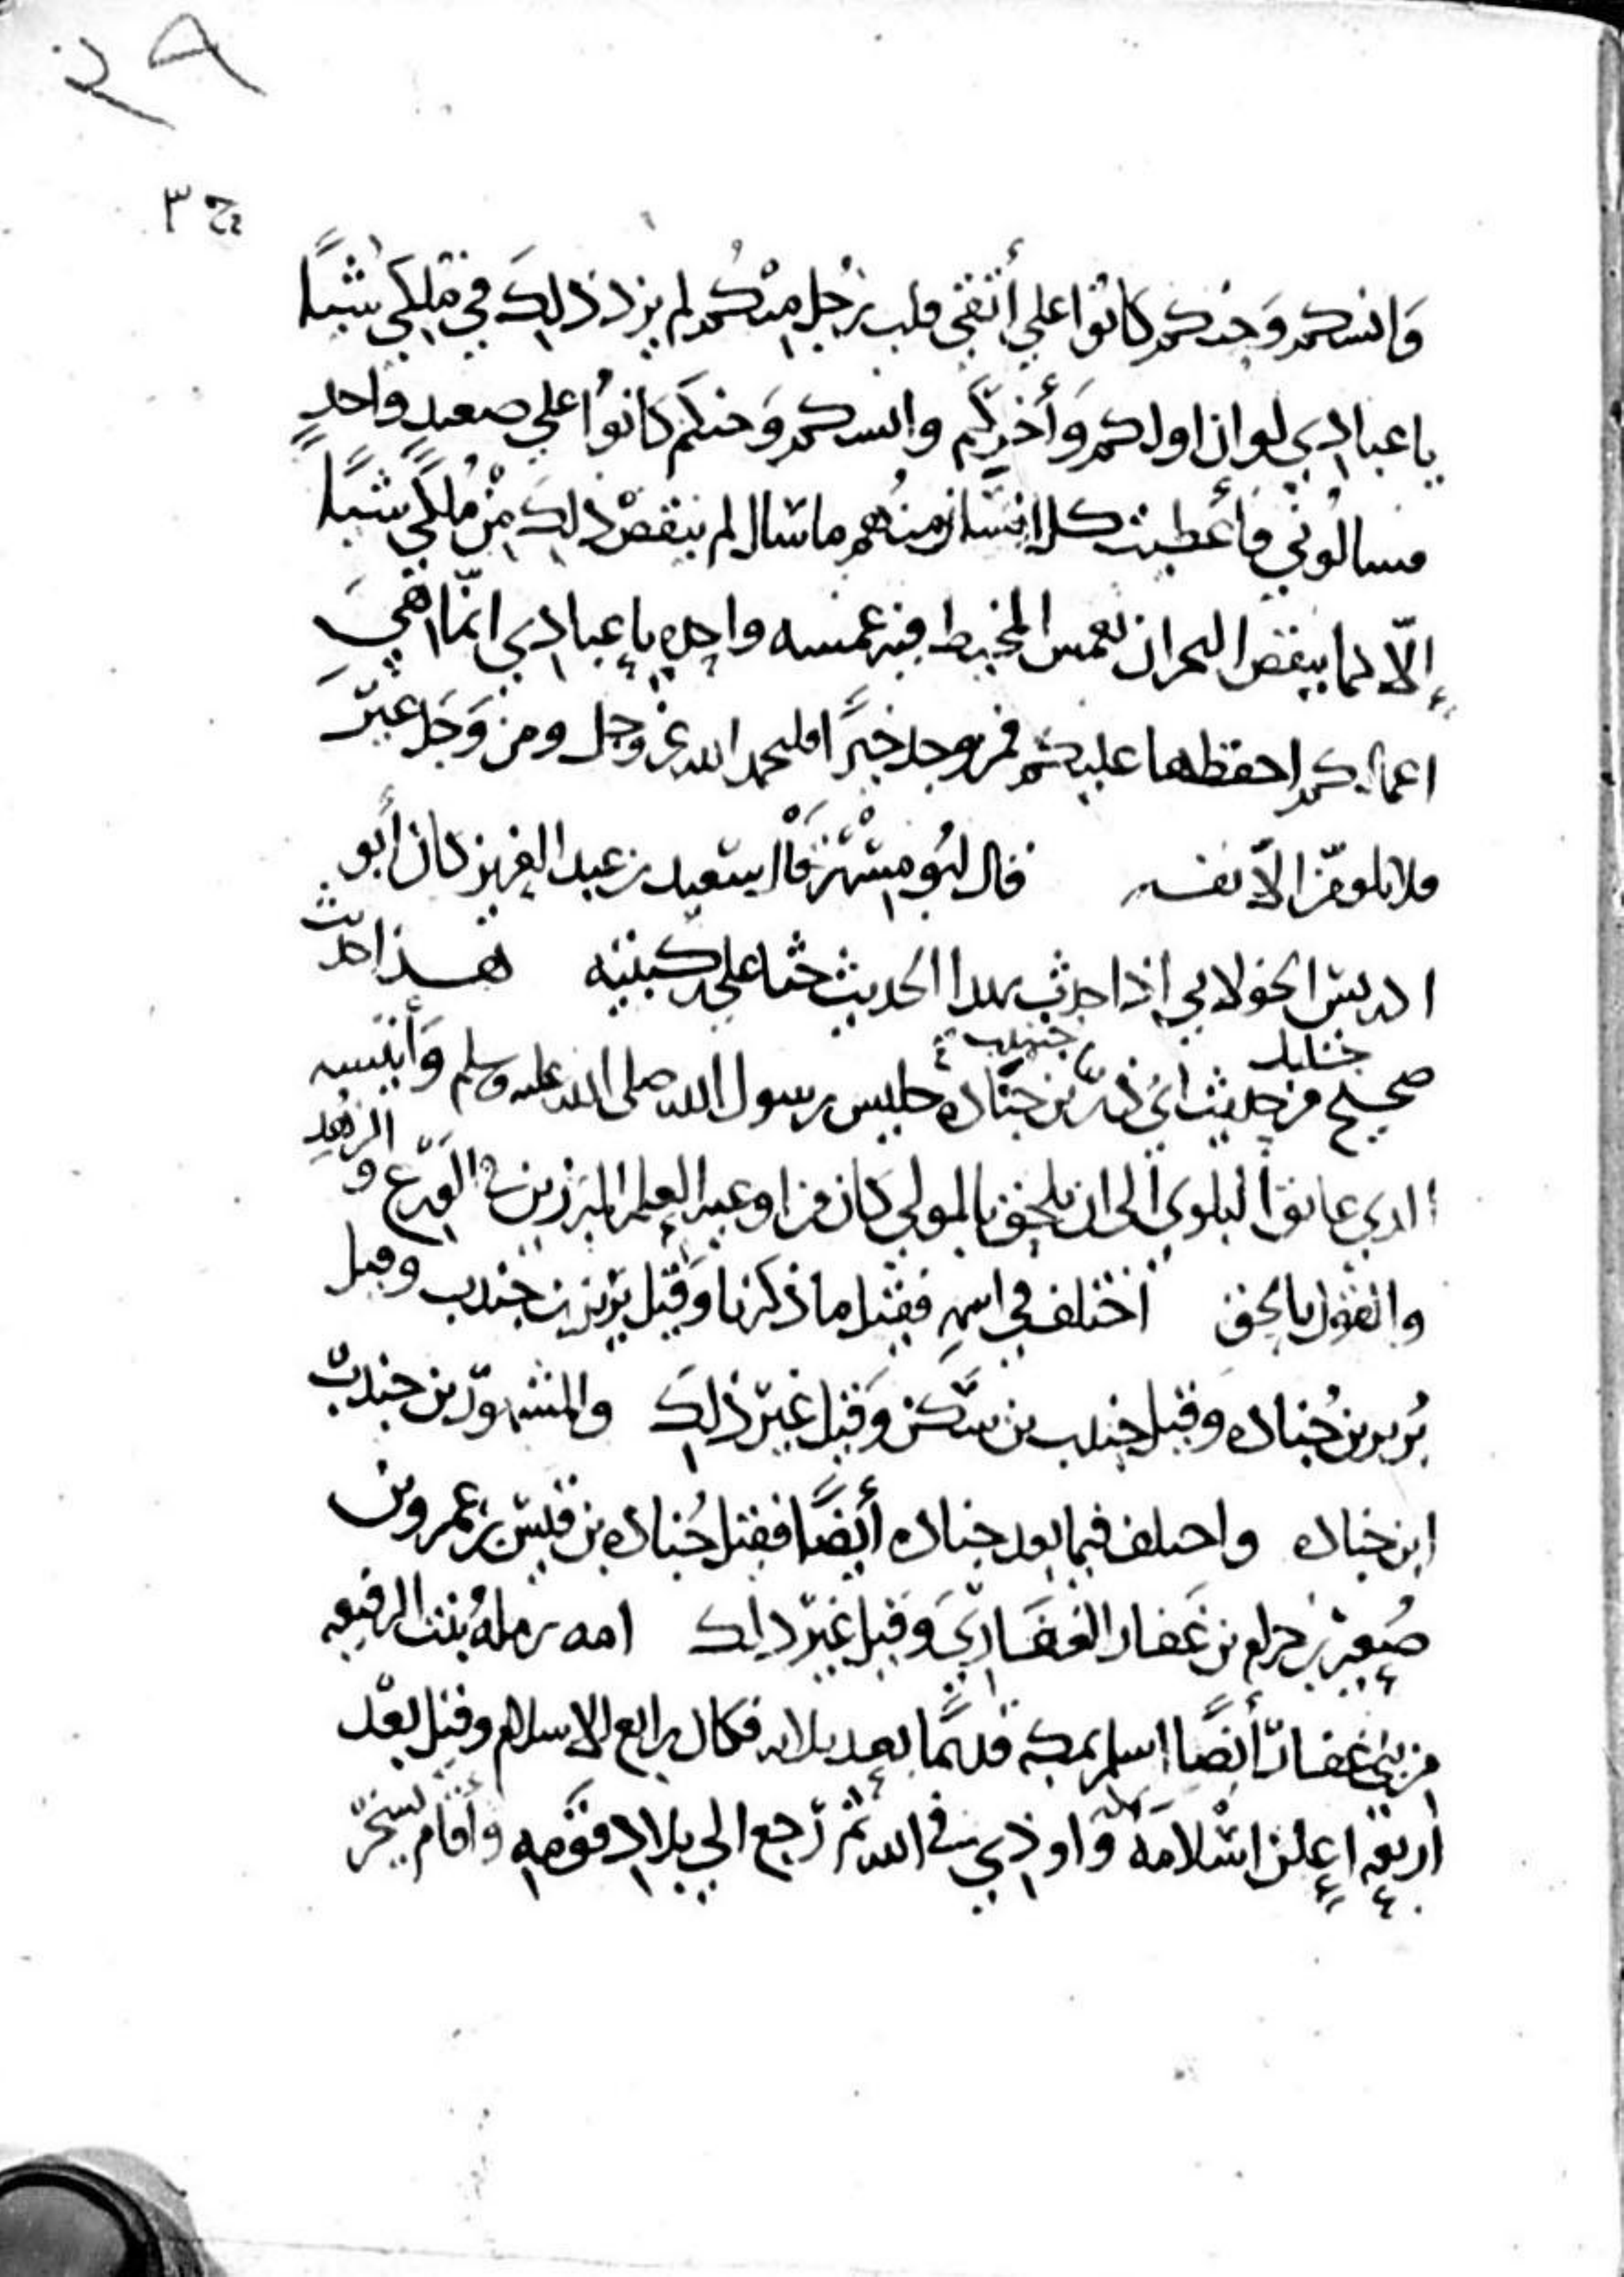 ٢٨
ج ٣
وَانسكم وَجنكم كانوا علي أتقي قلب رَجُل مِنْكُم لم يزد ذلِكَ في مُلكي شيًا
يا عبادي لو ان اولكم وَأخركم وانسكم وَجنكم كانوُا علي صعيدٍ واحدٍ
فسالُوني فأعطيت كل انسَان منهُم ما سَال لم ينقصْ ذلِكَ مِنْ مُلكي شيًا
إلّا كما ينقص البحر ان يغمس المخيط فيه غمسه واحده يا عبادي انّما هيَ
اعمالكم احفظها عليكم فمن وجد خيرًا فليحمد الله عز وجل ومن وَجَد غيرَ
فلا يلومّن الاّ نفسه قال ابُو مِسْهر قال سَعيد بن عبد العزيز كان أبو
ادريسَ الخولاني إذا حدث بهدا الحديث جثا علي ركبتيه هذا حديث
صحيح من حديث ابي ذرّ جندب بن جنّاده جليس رسول الله صلى الله عليه وسلم وَأنيسه
الدي عانق البلوي الى ان يلحق بالمولي كان من اوعيه العلم المبرزين في الورَع والزهد
والقول بالحق اختلف في اسمِهِ فقيل ما ذكرنا وَقيل بَرير بن جندب وقيل
بُرير بن جُناده وقيل جندب بن سَّكن وَقيل غيرَ ذلِكَ والمشهورّ بن جندبّ
ابن جناده واحلف فيما بعد جناده أيضًا فقيل جُناده بن قيسّ بن عمرو بن
صُعير بن حرام بن غَفار الغفَاريَ وَقيل غيرَ دلك امه رملهُ بنت الرقيعه
من بني غفارّ أيضًا اسلم بمكه قديمًا بعد ثلاثه فكان رابع الاسلام وقيل بعْد
اربعه اعلن اسْلامَه بمكه وَاوذي في الله ثم رَجع الي بلاد قومِه وأقام